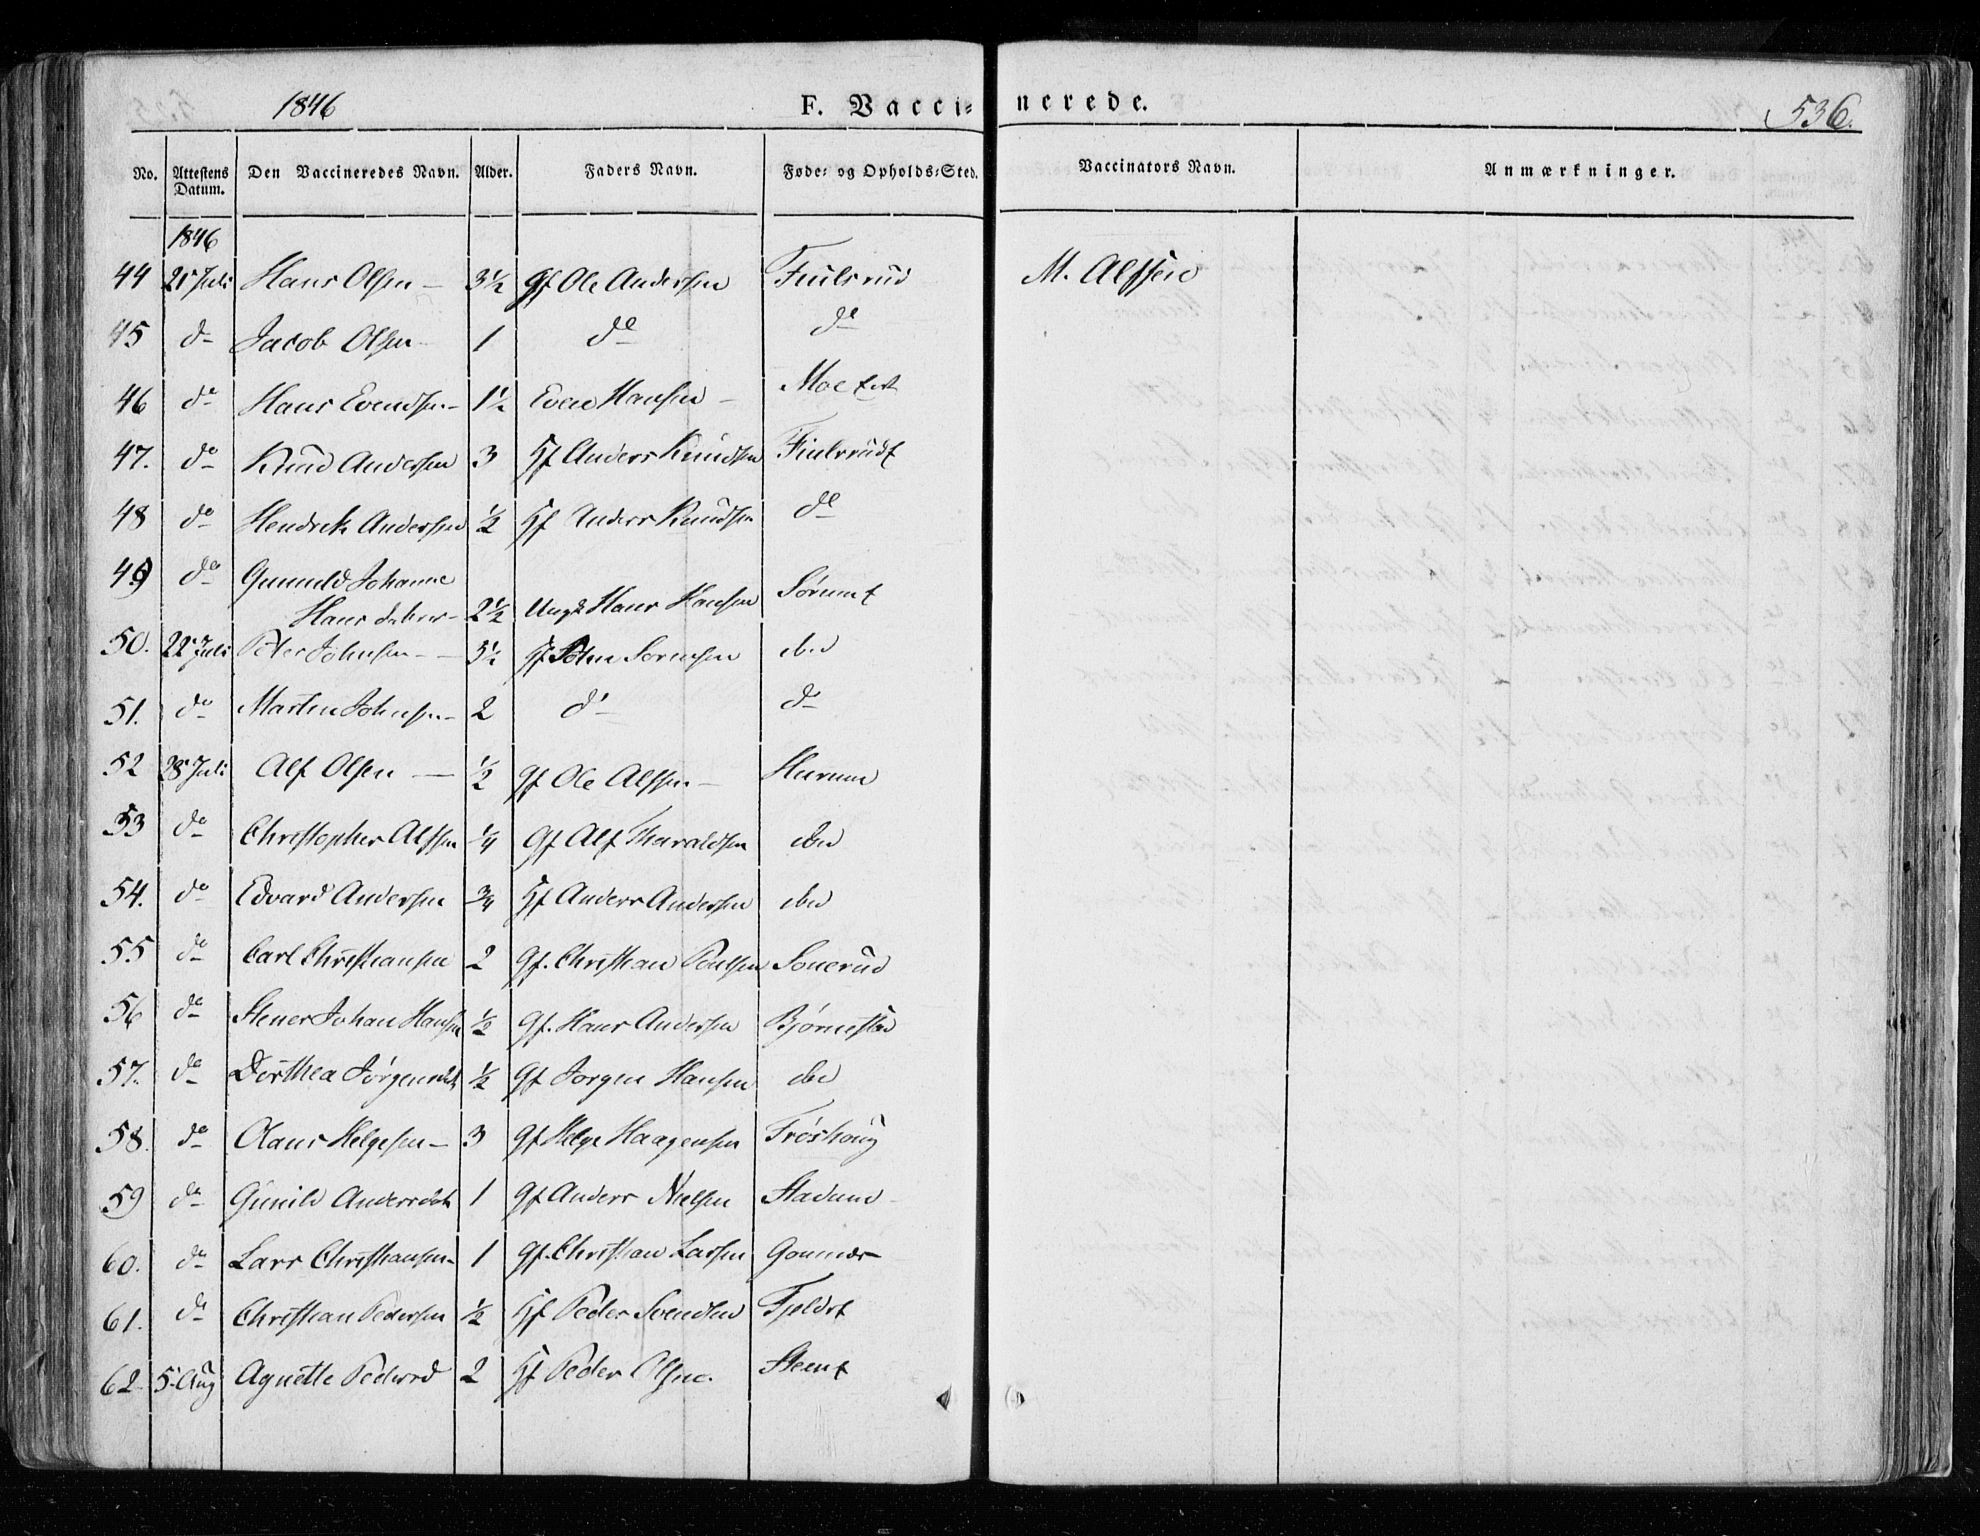 1846 F. Vaccinerede. 536.
No. Attestens Datum. Den Vaccineredes Navn. Alder. Faders Navn. Føde- og Opholds-Sted. Vaccinators Navn. Anmærkninger.
1846
44 21 Juli Hans Olsen 3½ Gf Ole Andersen Fiulsrud M. Alfsen
45 do Jacob Olsen 1 do do
46 do Hans Evendsen 1½ Even Hansen Moe
47. do Knud Andersen 3 Hf Anders Knudsen Fiulsrud
48 do Hendrik Andersen ½ Hf Anders Knudsen do
49 do Gunnild Johanne
Hansdatter 2½ Ungk Hans Hansen Sørum
50. 22 Juli Peter Johnsen 3½ Hf John Sørensen ibid
51. do Martin Johnsen 2 do do
52 28 Juli Alf Olsen ½ Gf Ole Alfsen Hurum
53 do Christopher Alfsen ¼ Gf Alf Tharaldsen ibid
54. do Edvard Andersen ¾ Hf Anders Andersen ibid
55 do Carl Christiansen 2 Gf. Christian Poulsen Sonerud
56 do Stener Johan Hansen ½ Gf. Hans Andersen Bjørnestad
57. do Dorthea Jørgensdatr ½ Gf Jørgen Hansen ibid
58. do Olaus Helgesen 3 Gf Helge Haagensen Frøshoug
59 do Gunild Andersdatr 1 Gf Anders Nielsen Stadum
60. do Lars Christiansen 1 Gf. Christian Larsen
61. do Christian Pedersen ½ Hf Peder Svendsen
62 5 Aug Agnette Pedersd 2 Hf Peder Olsen.